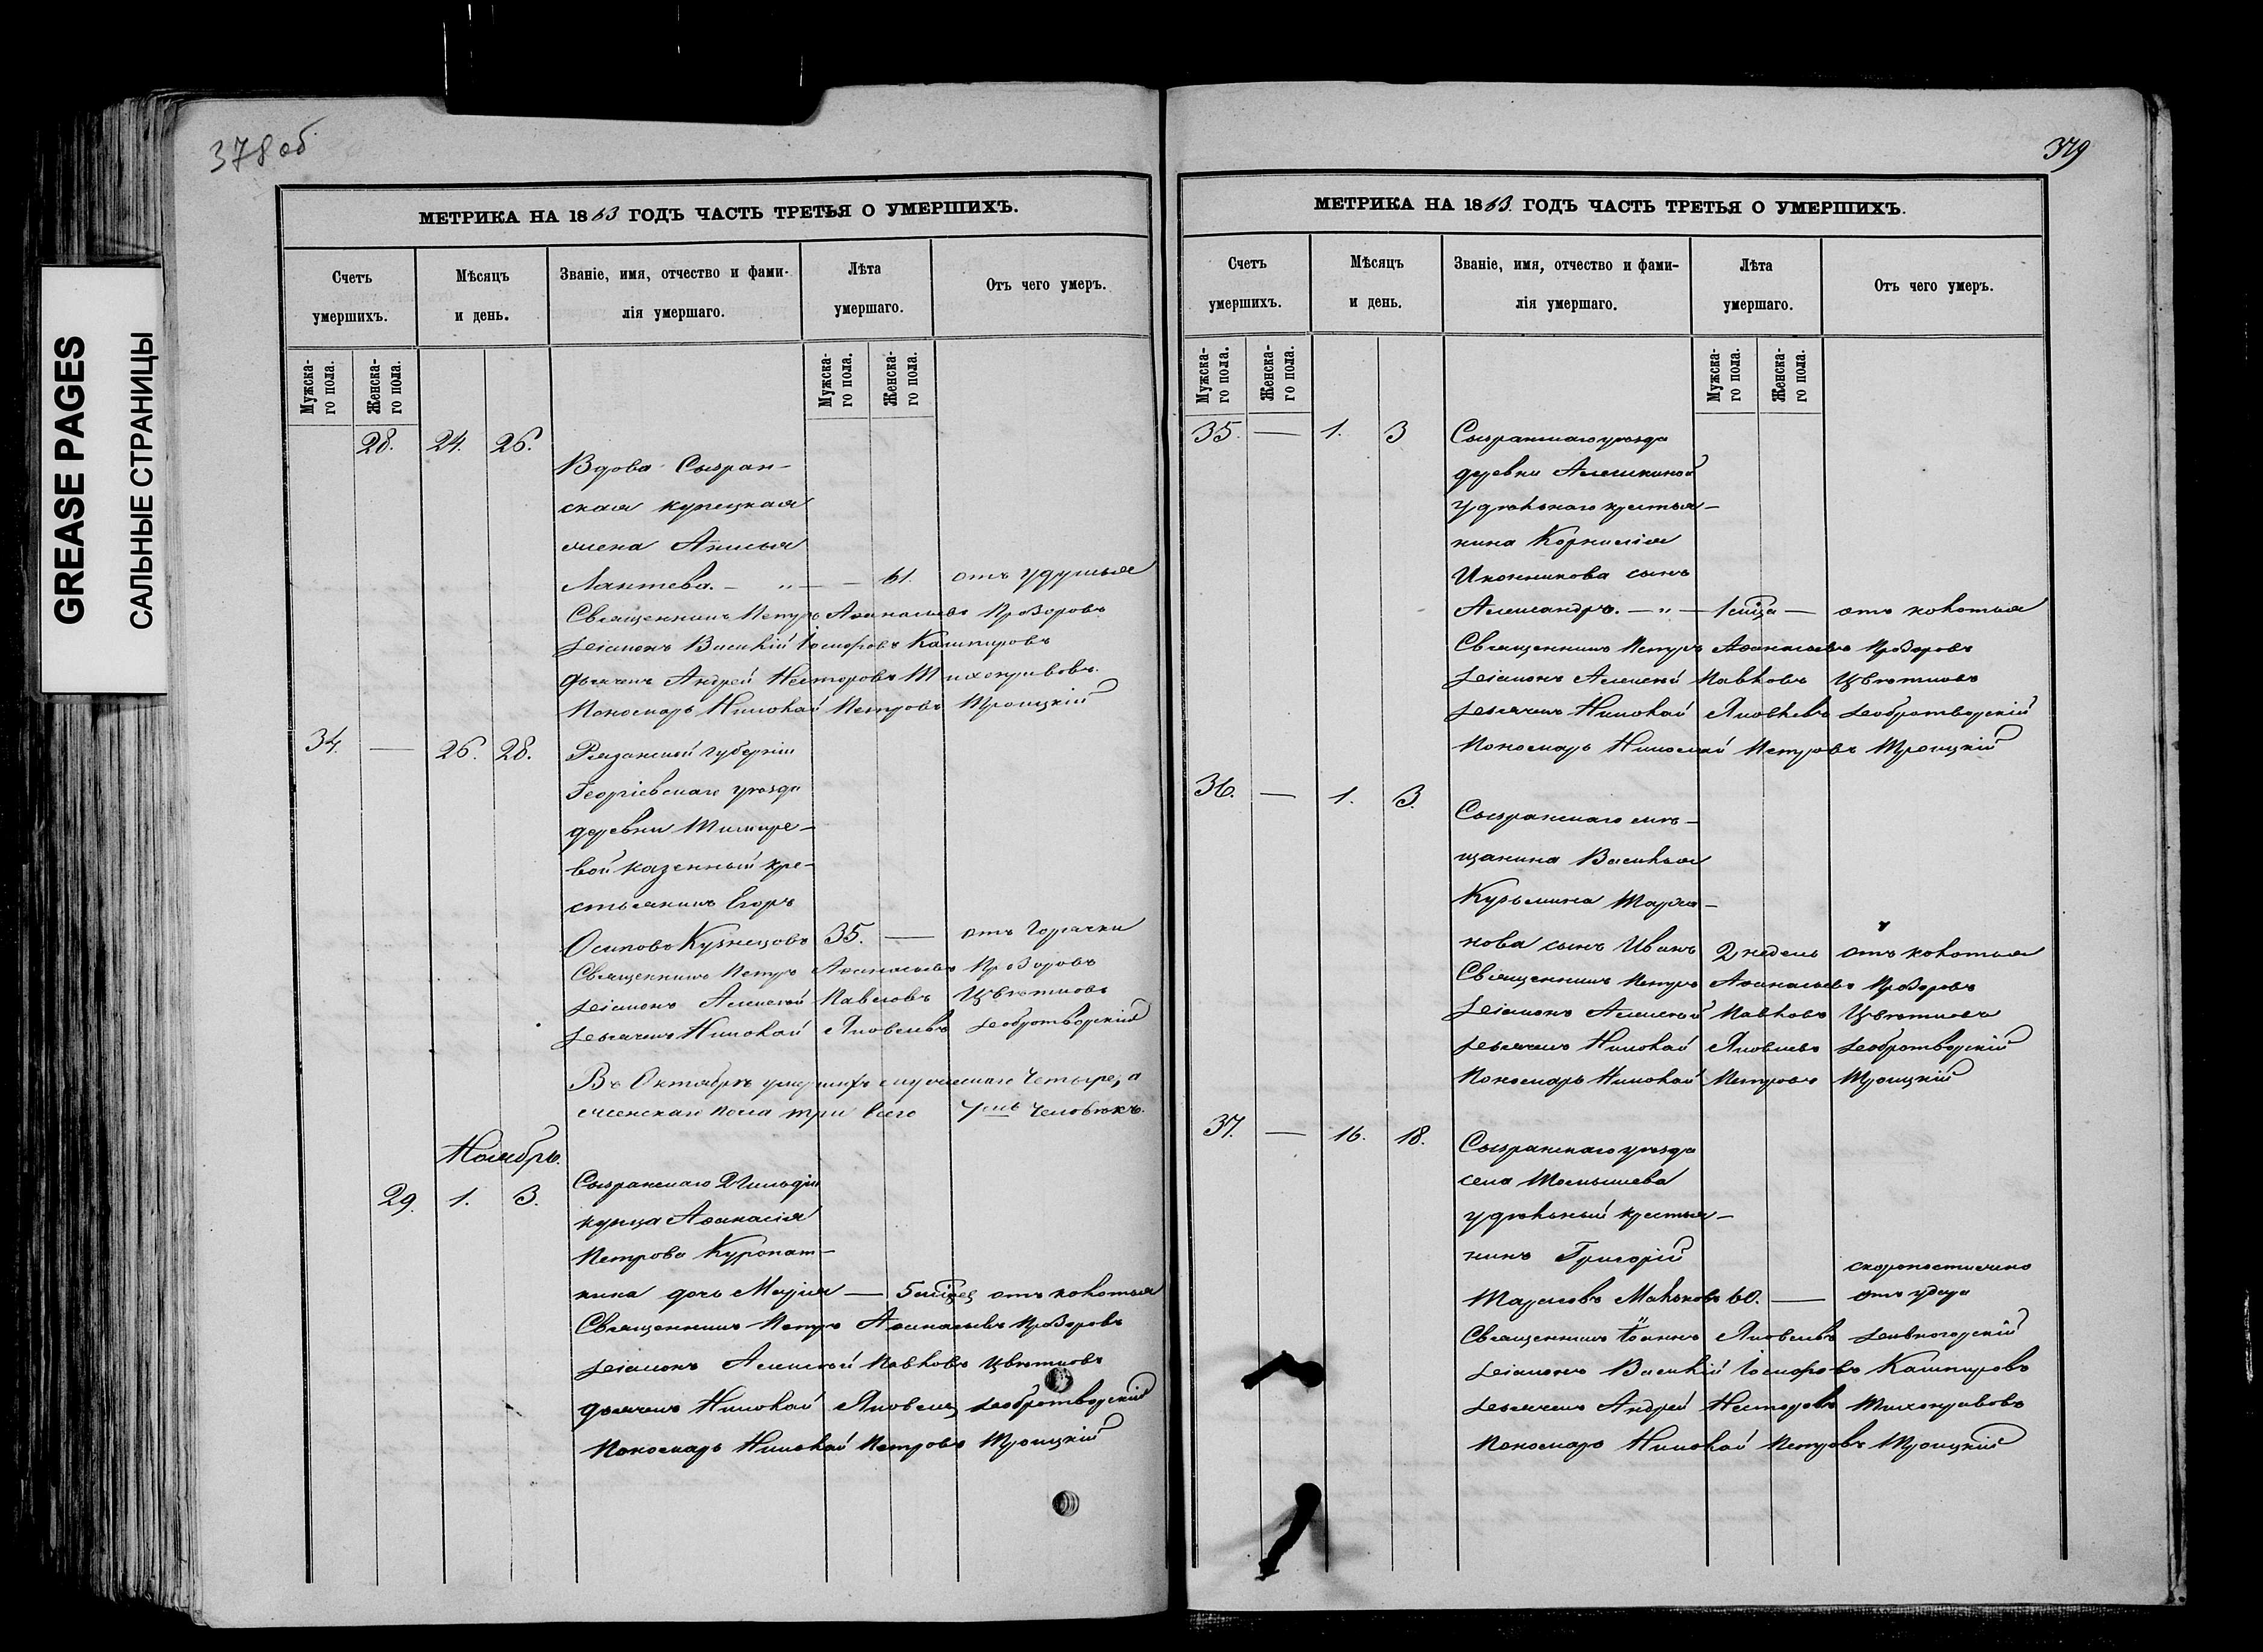 GREASE PAGES
САЛЬНЫЕ СТРАНИЦЫ
378об
МЕТРИКА НА 1863 ГОДЪ ЧАСТЬ ТРЕТЬЯ О УМЕРШИХЪ.
Счетъ умершихъ.
Мѣсяцъ и день.
Званіе, имя, отчество и фами-
лія умершаго.
Лѣта умершаго.
Отъ чего умеръ.
Мужска-
го пола.
Женска-
го пола.
Мужска-
го пола.
Женска-
го пола.
28. 24. 26.
Вдова Сызран-
ская купецкая
жена Акилина
Лаптева. — „ — — 61. отъ удушья
Священникъ Петръ Аѳанасьевъ Прозоровъ
Діаконъ Василій Іосифовъ Кашпировъ
Дьячекъ Андрей Несторовъ Тихонравовъ.
Пономарь Николай Петровъ Троицкій
34. — 26. 28. Рязанской губерніи
Георгіевскаго уѣзда
деревни
вой казенный кре-
стьянинъ Егоръ
Осиповъ Кузнецовъ 35. — отъ горячки
Священникъ Петръ Аѳанасьевъ Прозоровъ
Діаконъ Алексѣй Павловъ Цвѣтковъ
Дьячекъ Николай Яковлевъ Добротворскій
Въ Октябрѣ умершихъ мужескаго четыре, а
женскаго пола три всего 7мь человѣкъ.
Ноябрь.
29. 1. 3. Сызранскаго 2 гильдіи
купца Аѳанасія
Петрова Куропат-
кина дочь Марія — 5 мѣсяц отъ колотья
Священникъ Петръ Аѳанасьевъ Прозоровъ
Діаконъ Алексѣй Павловъ Цвѣтковъ
Дьячекъ Николай Яковлев Добротворскій
Пономарь Николай Петровъ Троицкій
379
МЕТРИКА НА 1863. ГОДЪ ЧАСТЬ ТРЕТЬЯ О УМЕРШИХЪ.
Счетъ умершихъ.
Мѣсяцъ и день.
Званіе, имя, отчество и фами-
лія умершаго.
Лѣта умершаго.
Отъ чего умеръ.
Мужска-
го пола.
Женска-
го пола.
Мужска-
го пола.
Женска-
го пола.
35. — 1. 3 Сызранскаго уѣзда
деревни Алешкиной
удѣльнаго крестья-
нина Корнилія
Иконникова сынъ
Александръ. — „ — 1 мѣсца — отъ колотья
Священникъ Петръ Аѳанасьевъ Прозоровъ
Діаконъ Алексѣй Павловъ Цвѣтковъ
Дьячекъ Николай Яковлевъ Добротворскій
Пономарь Николай Петровъ Троицкій
36. — 1. 3. Сызранскаго мѣ-
щанина Василья
Кузьмина
нова сынъ Иванъ 2 недель отъ колотья
Священникъ Петръ Аѳанасьевъ Прозоровъ
Діаконъ Алексѣй Павловъ Цвѣтковъ
Дьячекъ Николай Яковлевъ Добротворскій
Пономарь Николай Петровъ Троицкій
37. — 16. 18. Сызранскаго уѣзда
села
удѣльный крестья-
нинъ Григорій
скоропостижно
Тарасовъ Мальковъ 60. — отъ удара
Священникъ Іоаннъ Яковлевъ Дивногорскій
Діаконъ Василій Іосифовъ Кашпировъ
Дьячекъ Андрей Несторовъ Тихонравовъ
Пономарь Николай Петровъ Троицкій